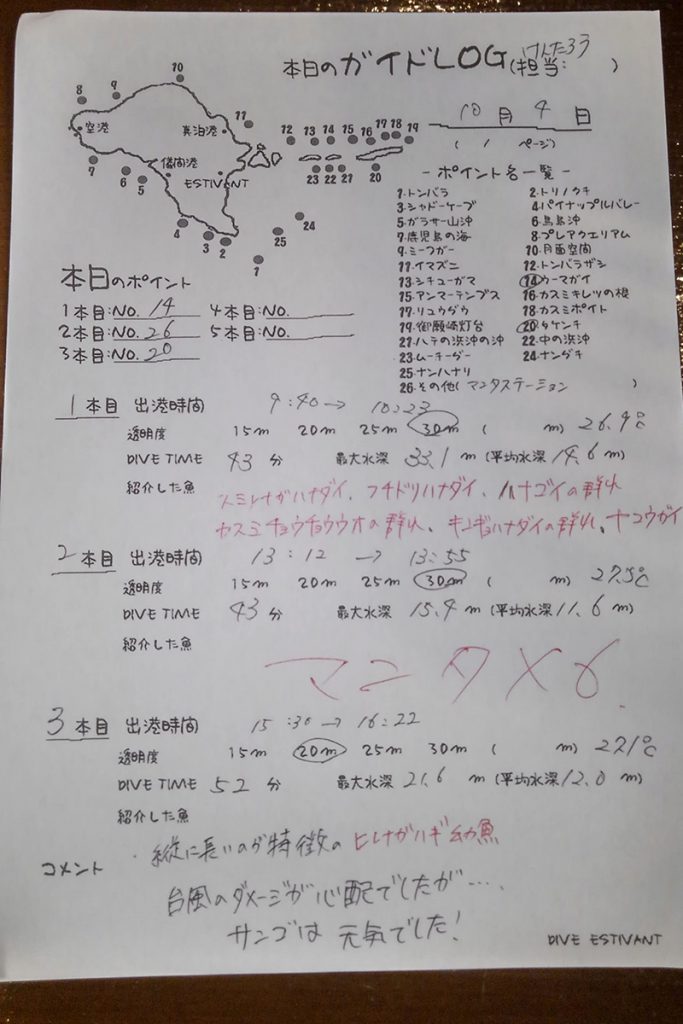 本日のガイドLOG(担当:けんたろう)
10月4日
( / ページ)
10
8 9
空港
真泊港
11
12 13 14 15 16 17 18 19
儀間港
7 6 5
ESTIVANT
23 22 21
20
24
25
4 3 2
1
- ポイント名一覧 -
1.トンバラ 2.トリノクチ
3.シャドーケーブ 4.パイナップルバレー
5.ガラサー山沖 6.鳥島沖
7.鹿児島の海 8.プレアクエリアム
9.ミーフガー 10.月面空間
11.イマズニ 12.トンバラザシ
13.シチューガマ 14.ウーマガイ
15.アンマーテンプス 16.カスミキレツの根
17.リュウグウ 18.カスミポイト
19.御願崎灯台 20.タケンチ
21.ハテの浜沖の沖 22.中の浜沖
23.ムーチーグー 24.ナングチ
25.ナンハナリ
26.その他(マンタステーション)
本日のポイント
1本目:NO. 14 4本目:NO.
2本目:NO. 26 5本目:NO.
3本目:NO. 20
1本目 出港時間 9:40→10:23
透明度 15m 20m 25m 30m ( m) 26.9℃
DIVE TIME 43分 最大水深 33.1m (平均水深14.6m)
紹介した魚
スミレナガハナダイ、フチドリハナダイ、ハナゴイの群れ
カスミチョウチョウウオの群れ、キンギョハナダイの群れ、ナコウガイ
2本目 出港時間 13:12→13:55
透明度 15m 20m 25m 30m ( m) 27.5℃
DIVE TIME 43分 最大水深 15.4m (平均水深11.6m)
紹介した魚
マンタ×6.
3本目 出港時間 15:30→16:22
透明度 15m 20m 25m 30m ( m) 27.1℃
DIVE TIME 52分 最大水深 21.6m (平均水深12.0m)
紹介した魚
・縦に長いのが特徴のヒレナガハギ幼魚
コメント
台風のダメージが心配でしたが‥‥.
サンゴは元気でした!
DIVE ESTIVANT